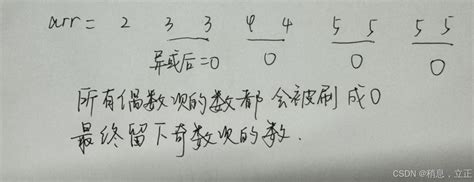 arr = 2 3 3 4 4 5 5 5 5
异或后=0 0 0 0
所有偶数次的数都会被刷成0
最终留下奇数次的数.
CSDN @稍息，立正